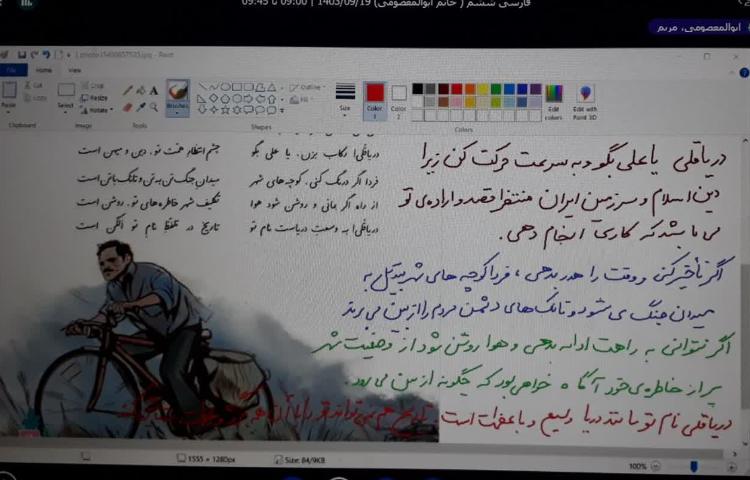 فارسی ششم ( خانم ابوالمعصومی) 1403/09/19 | 09:00 تا 09:45
ابوالمعصومی، مریم
File
Home
View
Paste
Cut
Copy
Clipboard
Select
Crop
Resize
Rotate
Image
Tools
Brushes
Shapes
Outline
Fill
Size
Color 1
Color 2
Colors
Edit colors
Edit with Paint 3D
دریاقلی! رکاب بزن، یا علی بگو
چشم انتظار همت تو، دین و میهن است
فردا اگر درنگ کنی، کوچه‌های شهر
میدان جنگ تن به تن و تانک با تن است
از راه اگر بمانی و روشن شود هوا
تکلیف شهر خاطره‌های تو، روشن است
دریاقلی! به وسعت دریاست نام تو
تاریخ در تلفظ نام تو الکن است
دریاقلی یا علی بگو و به سرعت حرکت کن زیرا
دین اسلام و سرزمین ایران منتظر قصد و اراده‌ی تو
می باشد که کاری انجام دهی.
اگر تأخیر کنی و وقت را هدر بدهی ، فردا کوچه های شهر تبدیل به
میدان جنگ می شود و تانک های دشمن مردم را از بین می برند
اگر نتوانی به راهت ادامه بدهی و هوا روشن شود از وضعیت شهر
پر از خاطره‌ی خود آگاه خواهی بود که چگونه از بین می رود.
دریاقلی نام تو مانند دریا وسیع و با عظمت است. تاریخ هم نمی تواند تو را با آن
1555 × 1280px
Size: 84/9KB
100%